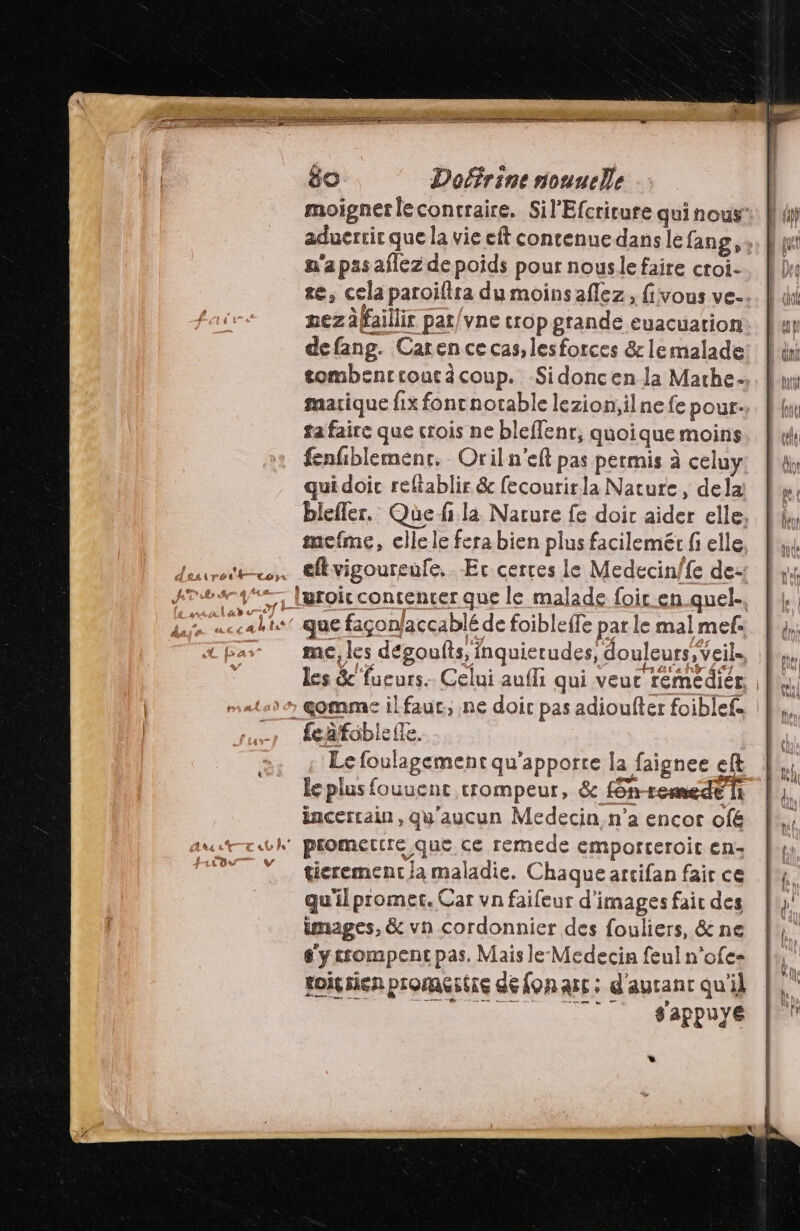 80 Doctrine nouuelle
moigner le contraire. Si l'Eſcriture qui nous
aduertit que la vie eſt contenue dans le ſang,
n'a pas aſſez de poids pour nous le faire croi-
re, cela paroiſtra du moins aſſez, ſi vous ve-
nez à faillir par vne trop grande euacuation
faire
de ſang. Car en ce cas, les forces & le malade
tombent tout à coup. Si donc en la Mathe-
matique ſix font notable lezion, il ne ſe pour-
ra faire que trois ne bleſſent, quoique moins
ſenſiblement. Or il n'eſt pas permis à celuy
qui doit reſtablir & ſecourir la Nature, de la
bleſſer. Que ſi la Nature ſe doit aider elle
meſme, elle le fera bien plus facilemét ſi elle
eſt vigoureuſe. Et certes le Medecin ſe de-
uroit contenter que le malade ſoit en quel-
que façon accablé de foibleſſe par le mal meſ-
me, les dégouſts, inquietudes, douleurs, veil-
les & ſueurs. Celui auſſi qui veut remedier
comme il faut, ne doit pas adiouſter foibleſ-
ſe à foibleſſe.
Le ſoulagement qu'apporte la ſaignee eſt
le plus ſouuent trompeur, & ſon remede ſi
incertain, qu'aucun Medecin n'a encor oſé
promettre que ce remede emporteroit en-
tierement la maladie. Chaque artiſan fait ce
qu'il promet. Car vn faiſeur d'images fait des
images, & vn cordonnier des ſouliers, & ne
s'y trompent pas. Mais le Medecin ſeul n'oſe-
roit rien promettre de ſon art: d'autant qu'il
s'appuye